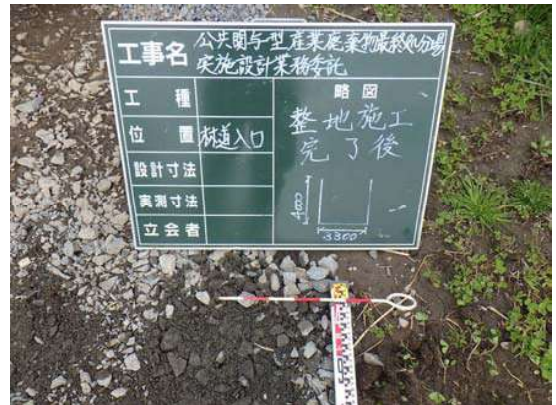 工事名 公共関与型産業廃棄物最終処分場
実施設計業務委託
工種
位置 林道入口
設計寸法
実測寸法
立会者
略図
整地施工
完了後
4000
3300